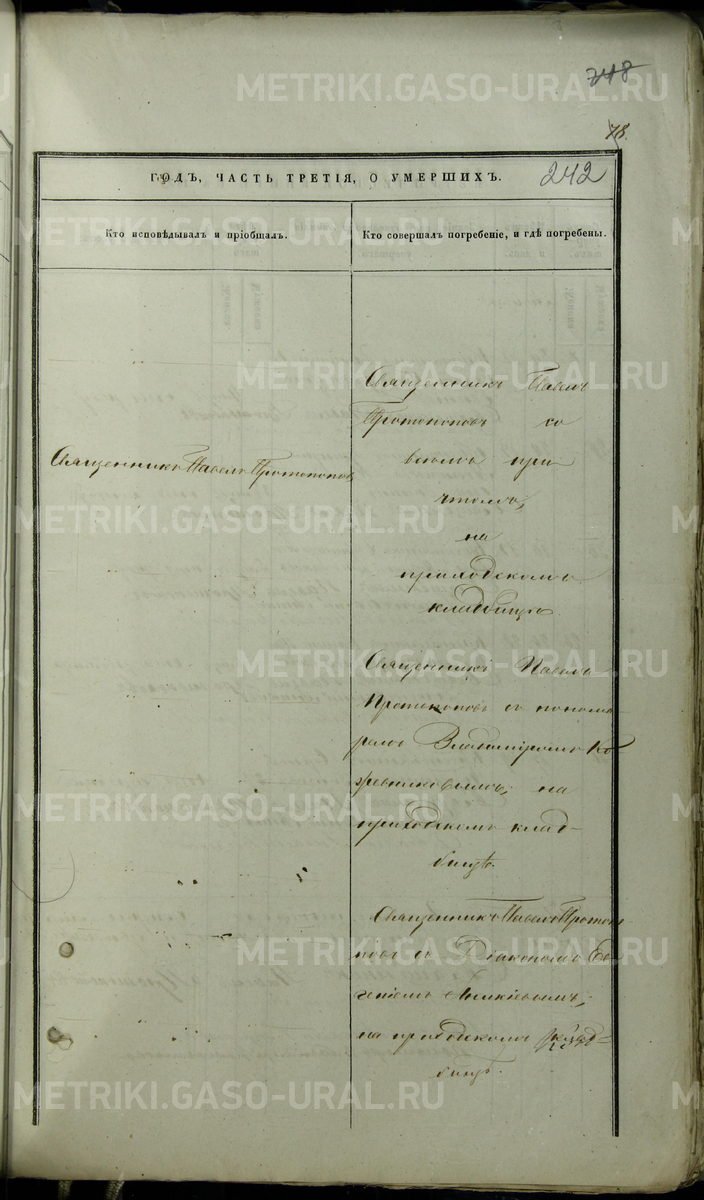 748
78.
ГОДЪ, ЧАСТЬ ТРЕТІЯ, О УМЕРШИХЪ.
242
Кто исповѣдывалъ и пріобщалъ.
Кто совершалъ погребеніе, и гдѣ погребены.
Священникъ Павелъ Протопоповъ
Священникъ Павелъ
Протопоповъ со
всѣмъ при
чтомъ,
на
приходскомъ
кладбищѣ
Священникъ Павелъ
Протопоповъ съ понома-
ремъ Владиміромъ Ко
жевниковымъ, на
приходскомъ клад-
бищѣ.
Священникъ Павелъ Протопо
повъ съ Діакономъ Ев
геніемъ Аникіевымъ,
на приходскомъ клад-
бищѣ.
METRIKI.GASO-URAL.RU